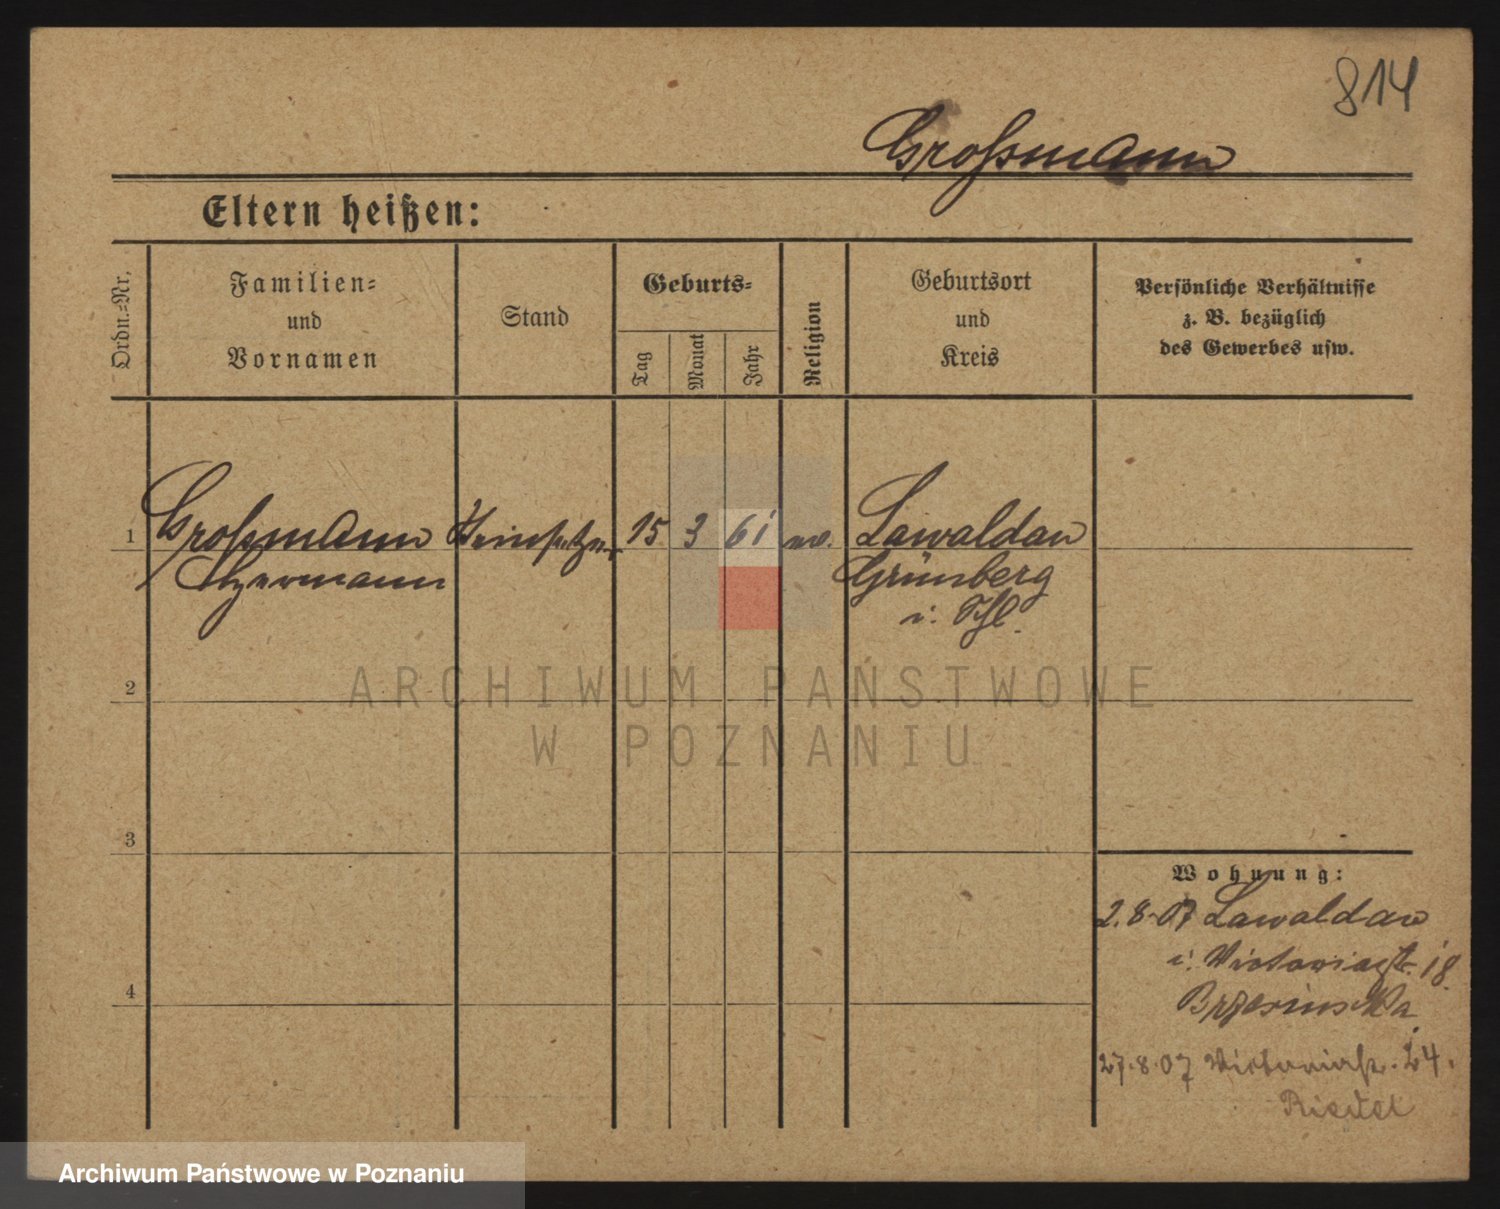 814
Großmann
Eltern heißen:
Ordn.-Nr.
Familien-
und
Vornamen
Stand
Geburts-
Tag
Monat
Jahr
Religion
Geburtsort
und
Kreis
Persönliche Verhältnisse
z. B. bezüglich
des Gewerbes usw.
1 Großmann Steinsetzer 15 3 61 ev. Lawaldau
Hermann Grünberg
i. Schl.
ARCHIWUM PAŃSTWOWE
W POZNANIU
2
3
4
Wohnung:
2.8.07 Lawaldau
i. Victoriastr. 18
Brzesinska
27.8.07 Victoriastr. 24.
Riedel
Archiwum Państwowe w Poznaniu